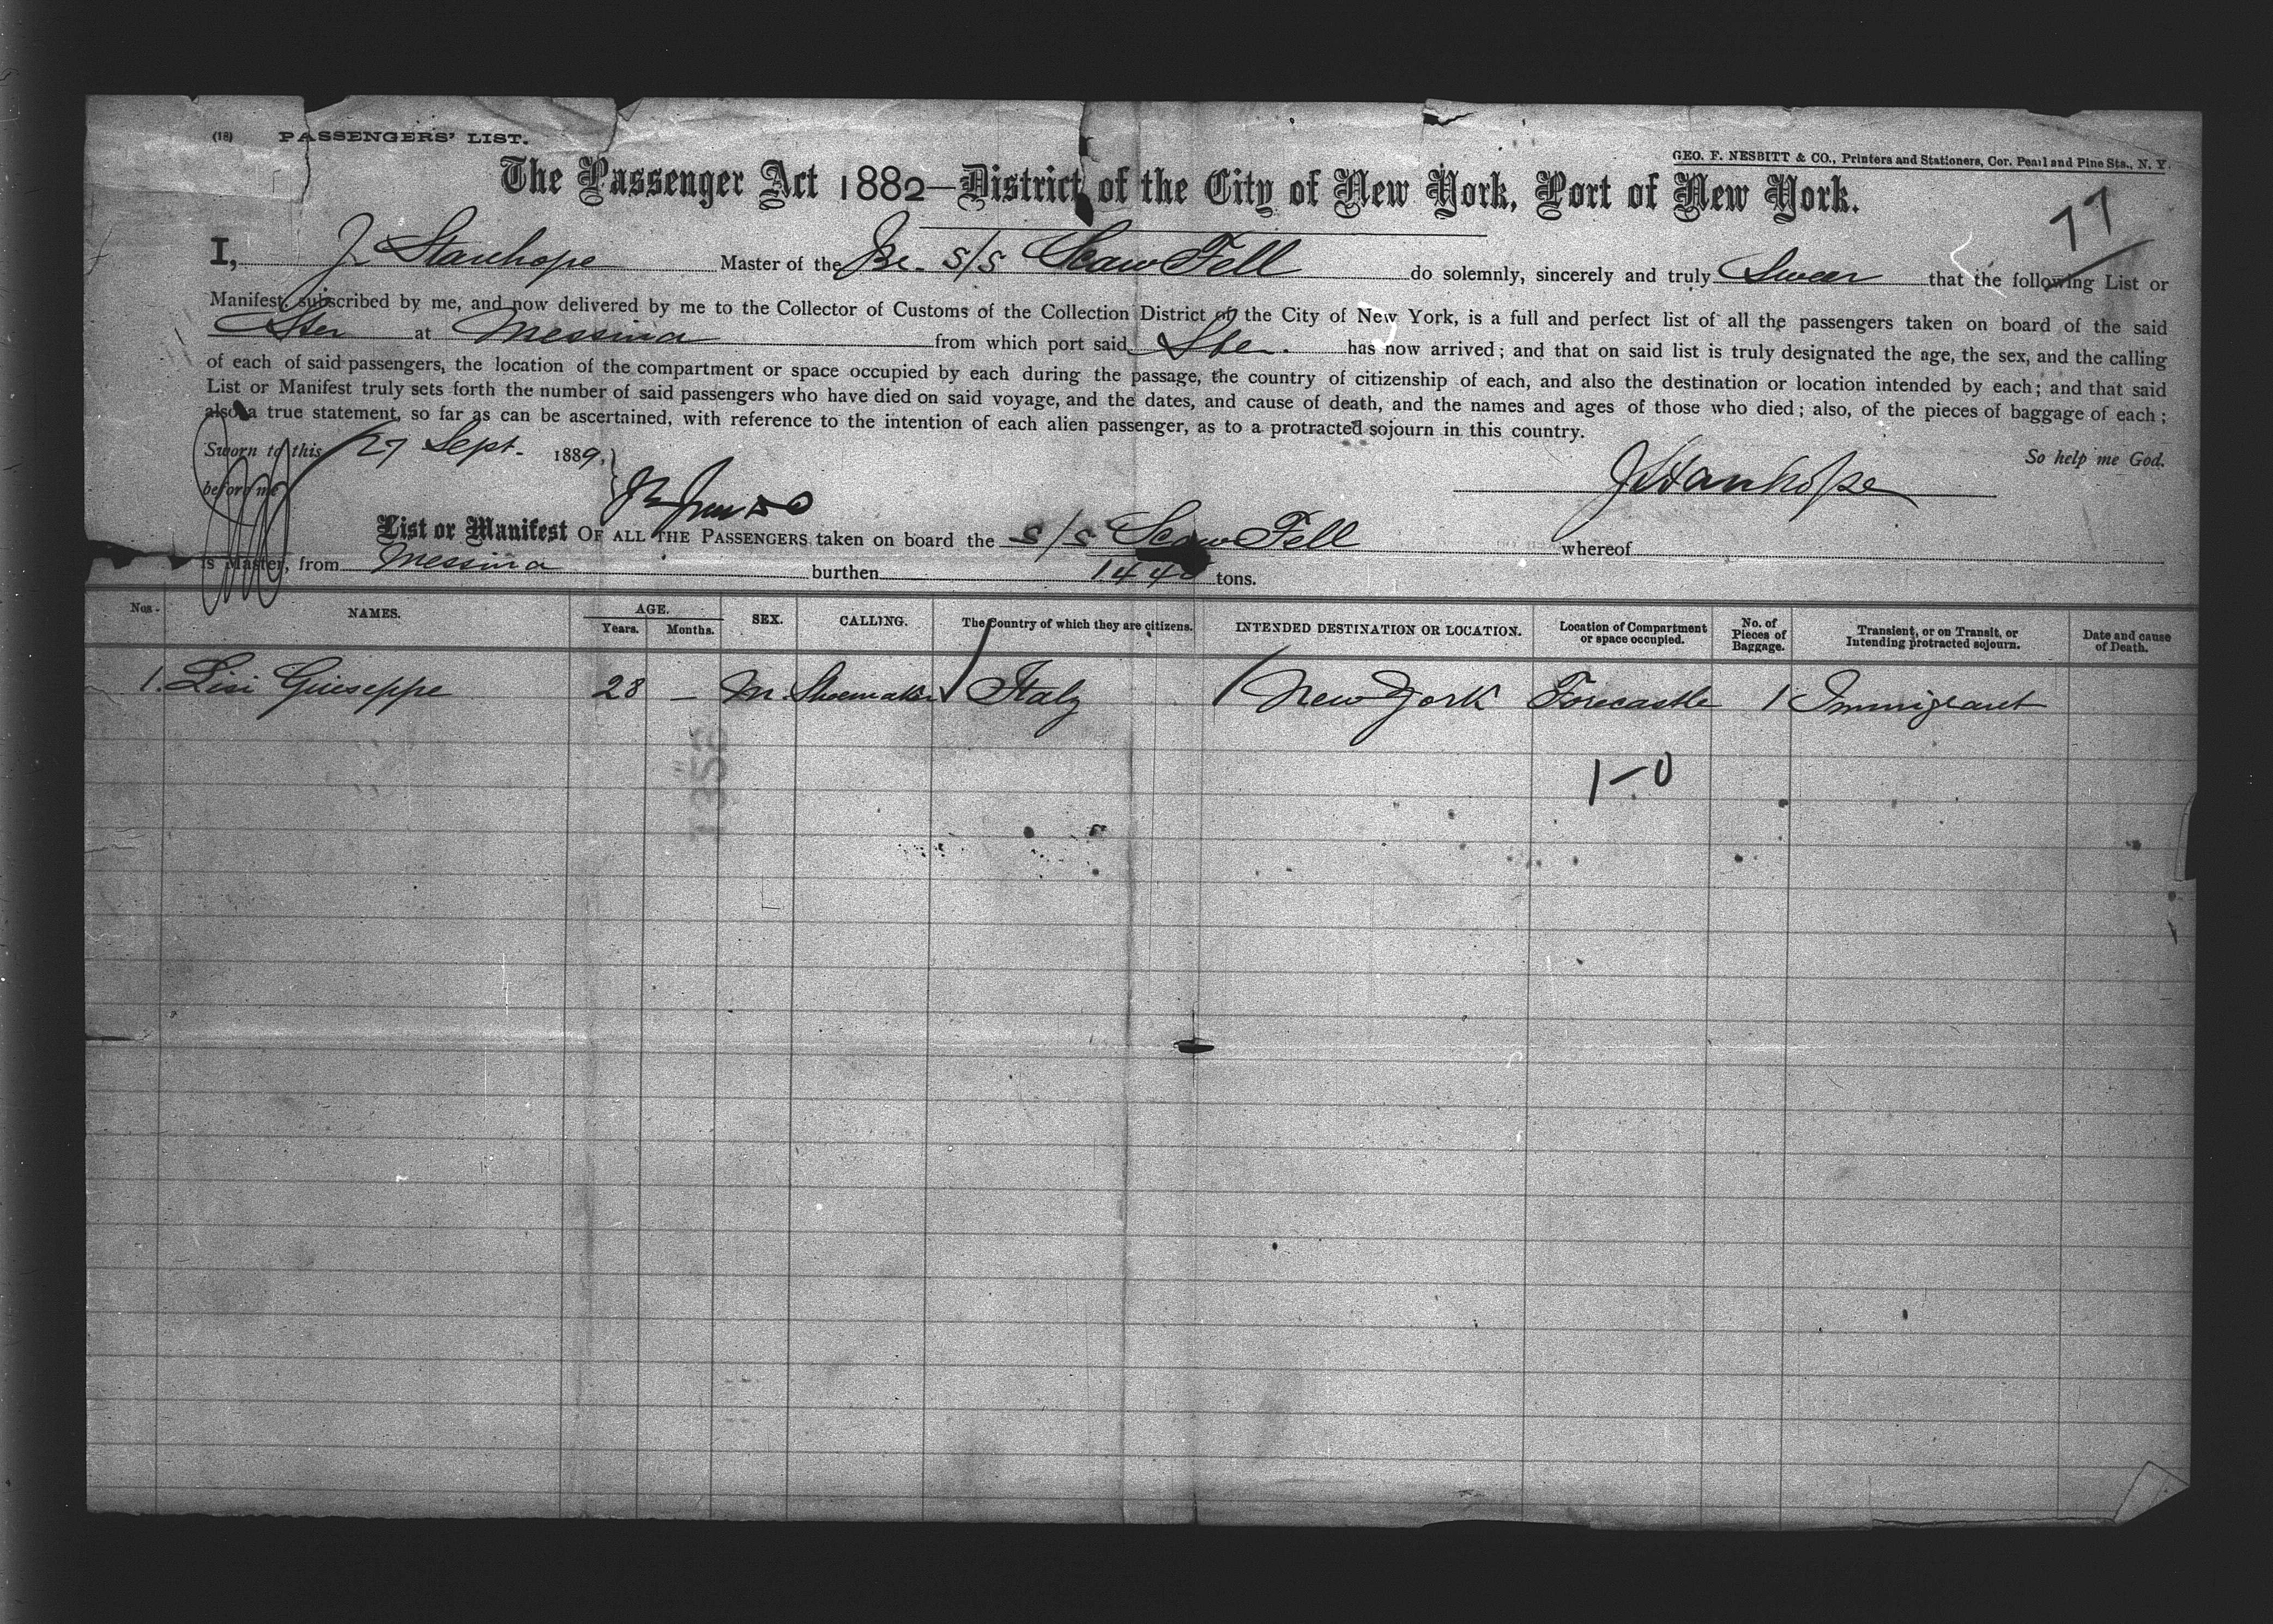 (18) PASSENGERS' LIST.
GEO. F. NESBITT & CO., Printers and Stationers, Cor. Pearl and Pine Sts., N. Y.
The Passenger Act 1882—District of the City of New York, Port of New York.
77
I, J. Stanhope Master of the Br. S/S Scaw Fell do solemnly, sincerely and truly Swear that the following List or
Manifest, subscribed by me, and now delivered by me to the Collector of Customs of the Collection District of the City of New York, is a full and perfect list of all the passengers taken on board of the said
Ster at Messina from which port said Ster. has now arrived; and that on said list is truly designated the age, the sex, and the calling
of each of said passengers, the location of the compartment or space occupied by each during the passage, the country of citizenship of each, and also the destination or location intended by each; and that said
List or Manifest truly sets forth the number of said passengers who have died on said voyage, and the dates, and cause of death, and the names and ages of those who died; also, of the pieces of baggage of each;
also a true statement, so far as can be ascertained, with reference to the intention of each alien passenger, as to a protracted sojourn in this country.
Sworn to this 27 Sept. 1889, So help me God.
before me J Stanhope
List or Manifest OF ALL THE PASSENGERS taken on board the S/S Scaw Fell whereof
is Master, from Messina burthen 1440 tons.
Nos. NAMES. AGE. Years. Months. SEX. CALLING. The Country of which they are citizens. INTENDED DESTINATION OR LOCATION. Location of Compartment or space occupied. No. of Pieces of Baggage. Transient, or on Transit, or Intending protracted sojourn. Date and cause of Death.
1. Lisi Giuseppe 28 — M. Shoemaker Italy New York Forecastle 1 Immigrant
1-0